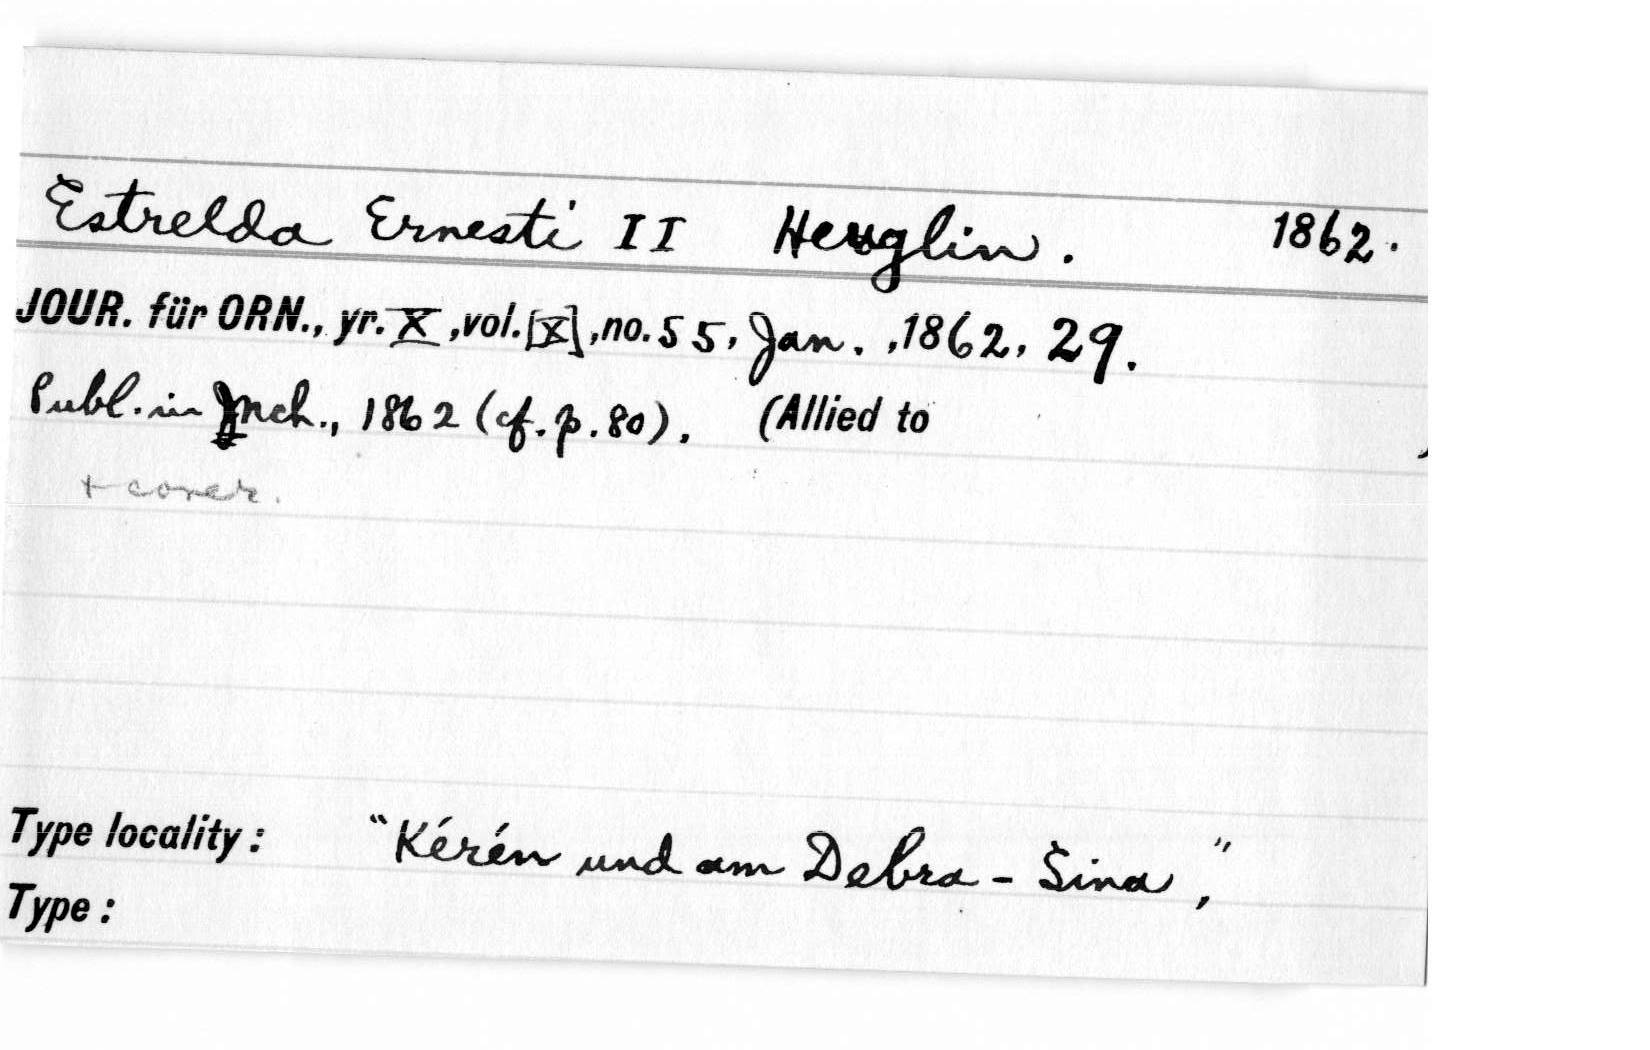 Estrelda Ernesti II Heuglin. 1862.
JOUR. für ORN., yr. X, vol. [X], no. 55, Jan., 1862, 29.
Publ. in Mch., 1862 (cf. p. 80). (Allied to )
+ cover.
Type locality: "Kérén und am Debra-Sina,"
Type: